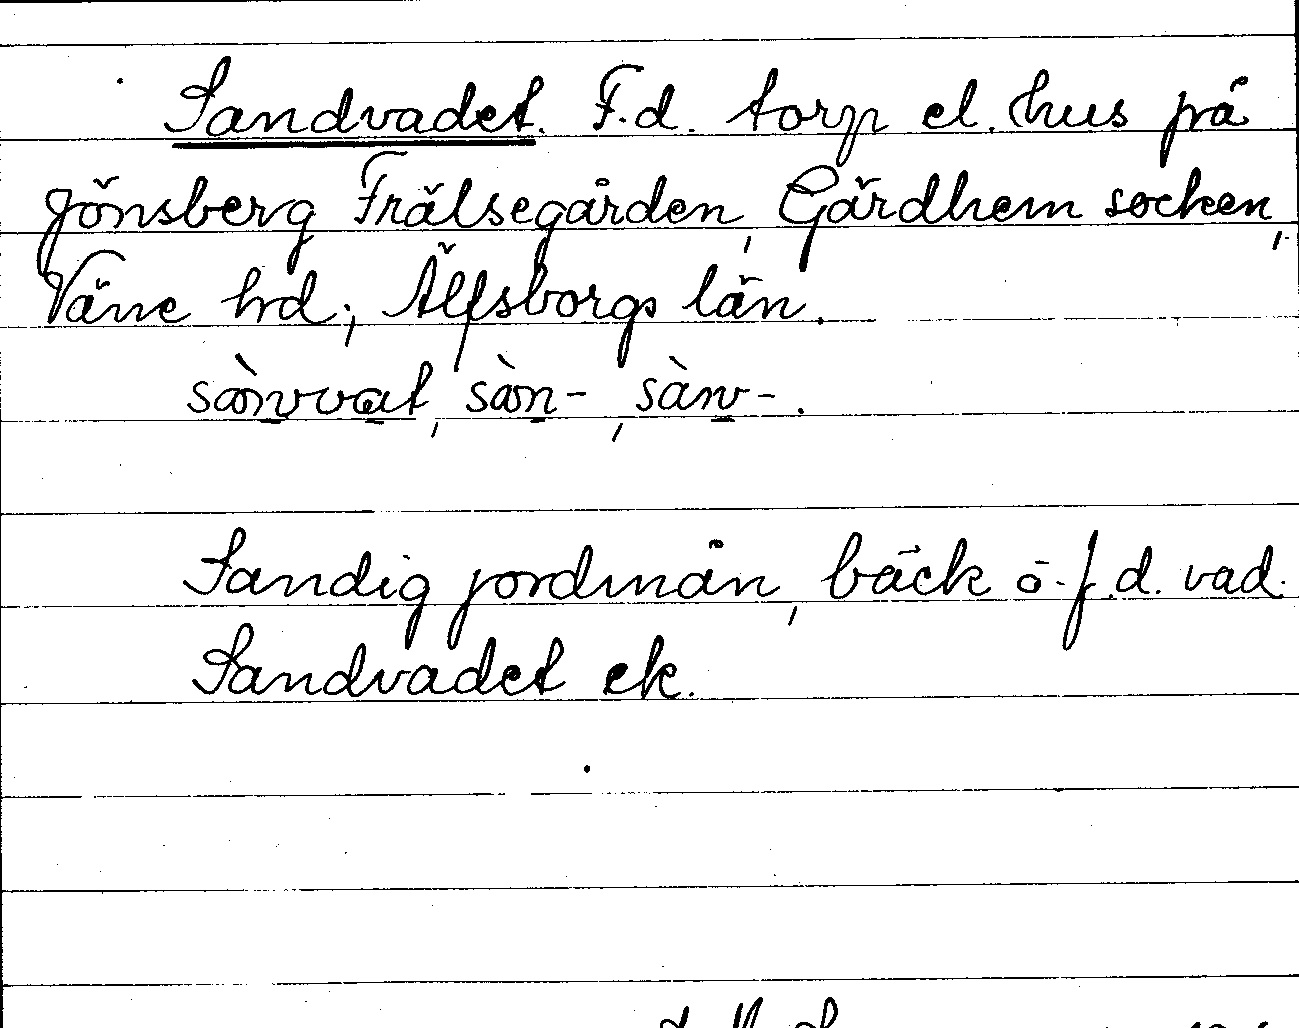 Sandvadet. F.d. torp el. hus på
Jönsberg Frälsegården, Gärdhem socken,
Väne hd; Älfsborgs län.
sànvvat, sàn-, sànv-.
Sandig jordmån, bäck o. f.d. vad.
Sandvadet ek.